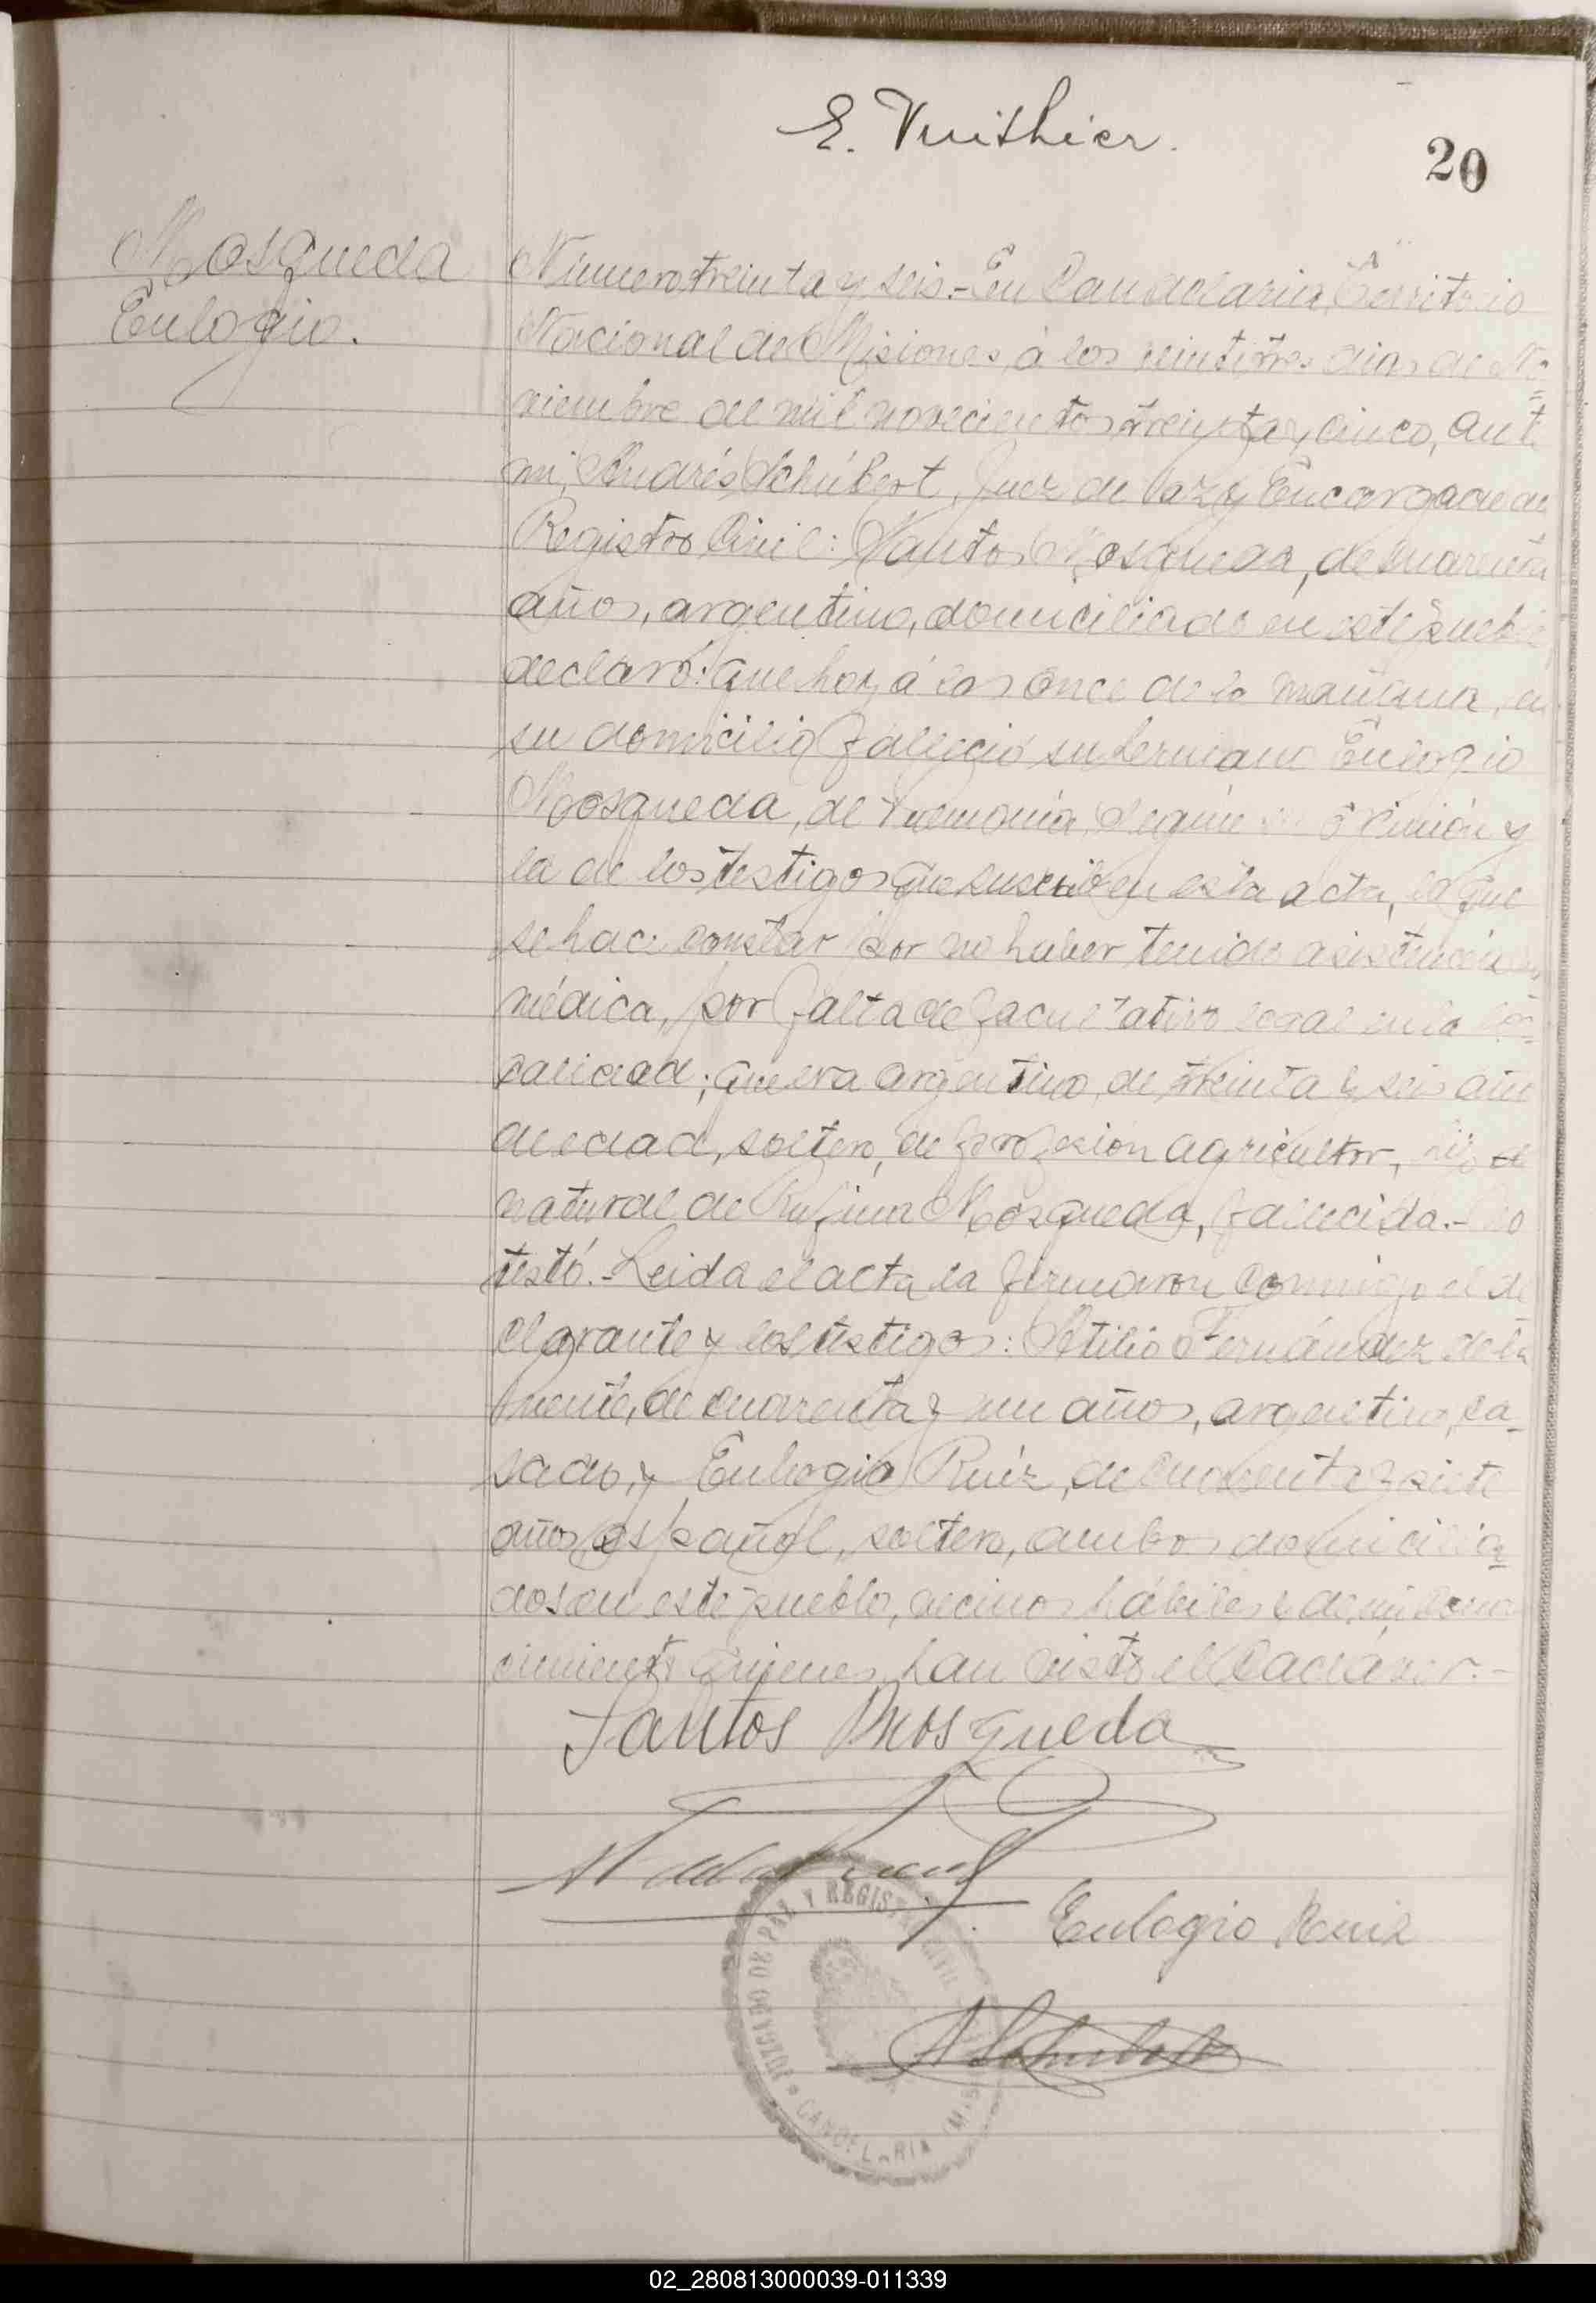 E. Vuithier.
20
Mosqueda
Eulogio.
Número treinta y seis.- En Candelaria, Territorio
Nacional de Misiones, á los veintitres dias de No=
viembre de mil novecientos treinta y cinco, ante
mi, Andrés Schúbert, Juez de Paz y Encargado del
Registro Civil: Santos Mosqueda, de cuarenta
años, argentino, domiciliado en este pueblo,
declaró: que hoy á las once de la mañana, en
su domicilio falleció su hermano Eulogio
Mosqueda, de Pnemonía, según su opinión y
la de los testigos que suscriben esta acta, lo que
se hace constar por no haber tenido asistencia
médica, por falta de facultativo legal en la lo=
calidad; que era argentino, de treinta y seis años
de edad, soltero, de profesion agricultor, hijo
natural de Rufina Mosqueda, fallecida.- No
testó.- Leida el acta la firmaron conmigo el de
clarante y los testigos: Atilio Fernández de la
Puente, de cuarenta y un años, argentino, ca-
sado, y Eulogio Ruíz, de cuarenta y siete
años, español, soltero, ambos domicilia=
dos en este pueblo, vecinos hábiles y de mi cono
cimiento quienes han visto el cadáver.-
Santos Mosqueda
Eulogio Ruiz
A Schubert
JUZGADO DE PAZ Y REGISTRO CIVIL
CANDELARIA (MISIONES)
02_280813000039-011339